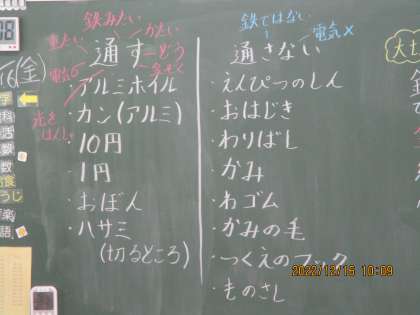 鉄みたい
かたい
重たい
通す
どう
電気○
金ぞく
光を
はんしゃ
アルミホイル
・カン(アルミ)
・10円
・1円
・おぼん
・ハサミ
(切るところ)
鉄ではない
電気×
通さない
・えんぴつのしん
・おはじき
・わりばし
・かみ
・わゴム
・かみの毛
・つくえのフック
・ものさし
(金)
学
科
活
数
給食
うじ
楽
語
2022/12/16 10:09